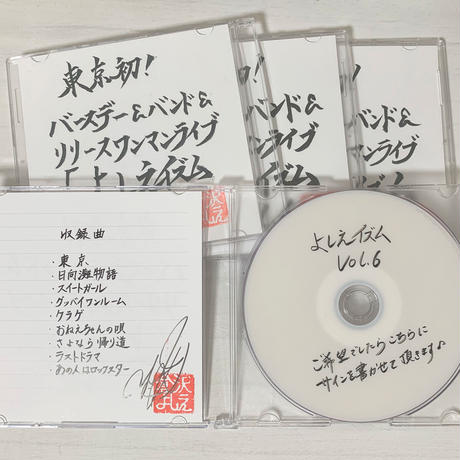 東京初!
バースデー&バンド&
リリースワンマンライブ
「よ」ライズム
初!
バンド&
マンライブ
イズム
バンド&
マンライブ
ズム
収録曲
・東京
・日向灘物語
・スイートガール
・グッバイワンルーム
・クラゲ
・おねえちゃんの唄
・さよなら帰り道
・ラストドラマ
・あの人はロックスター
よしえイズム
Vol.6
ご希望でしたらこちらに
サインを書かせて頂きます♪